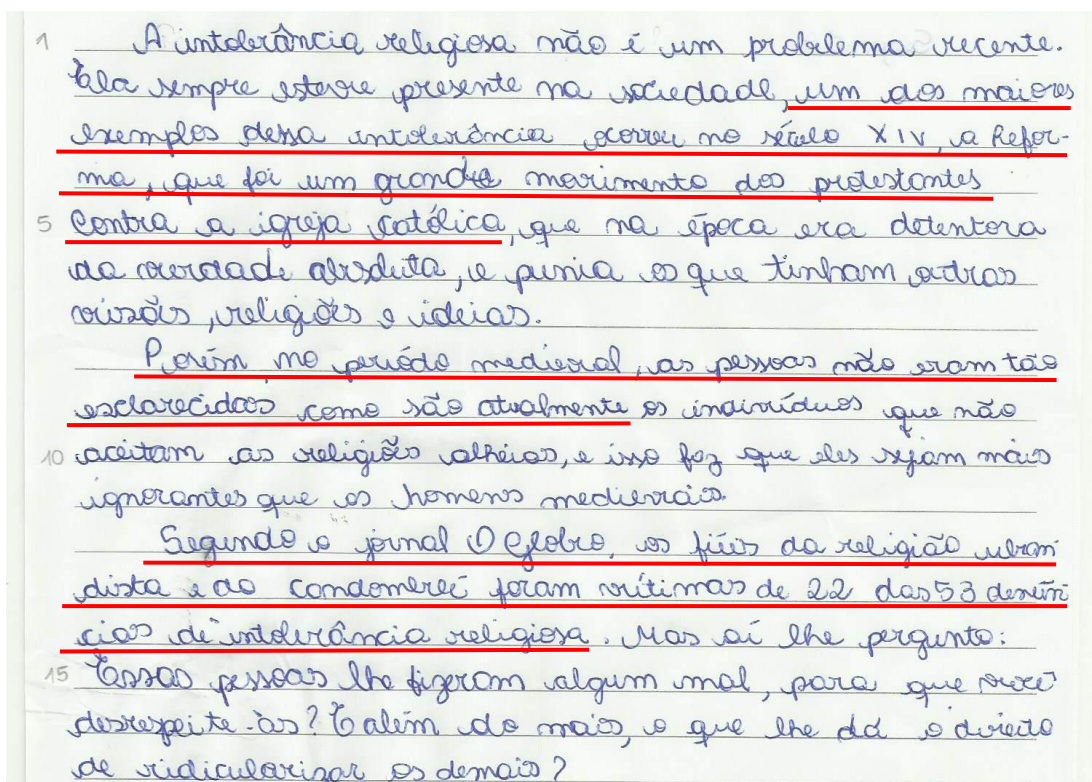 1 A intolerância religiosa não é um problema recente.
Ela sempre esteve presente na sociedade, um dos maiores
exemplos dessa intolerância ocorreu no século XIV, a Refor-
ma, que foi um grande movimento dos protestantes
5 contra a igreja católica, que na época era detentora
da verdade absoluta, e punia os que tinham outras
visões, religiões e ideias.
Porém, no período medieval, as pessoas não eram tão
esclarecidas como são atualmente os indivíduos que não
10 aceitam as religiões alheias, e isso faz que eles sejam mais
ignorantes que os homens medievais.
Segundo o jornal O Globo, os fiéis da religião
dista e do foram vítimas de 22 das 53 denún
cias de intolerância religiosa. Mas aí lhe pergunto:
15 Essas pessoas lhe fizeram algum mal, para que você
desrespeite-as? E além do mais, o que lhe dá o direito
de ridicularizar os demais?